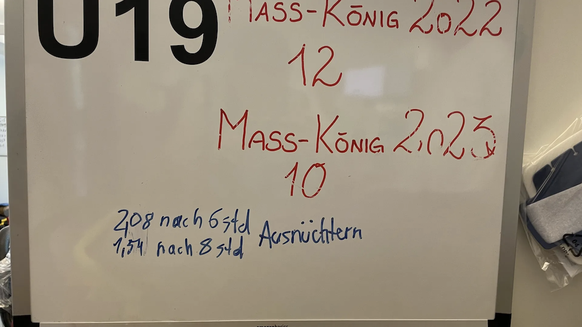 U19
MASS-KÖNIG 2022
12
MASS-KÖNIG 2023
10
2,08 nach 6 std
1,54 nach 8 std Ausnüchtern